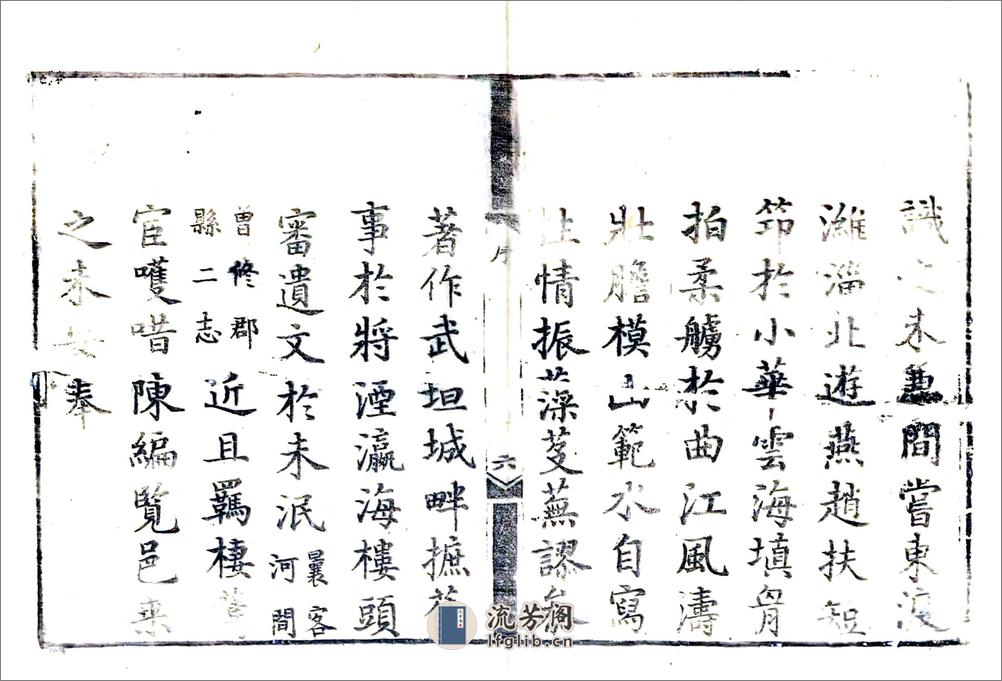 識之未兼間嘗東渡
濰淄北遊燕趙扶短
笻於小華雲海填胷
拍柔艣於曲江風濤
壯膽模山範水自寫
性情振藻芟蕪謬參
序
六
著作武垣城畔摭
事於將湮瀛海樓頭
審遺文於未泯曩客河間
曾修郡縣二志近且羈棲
宦嚄唶陳編覽邑乘
之未奉
流芳阁
lfglib.cn